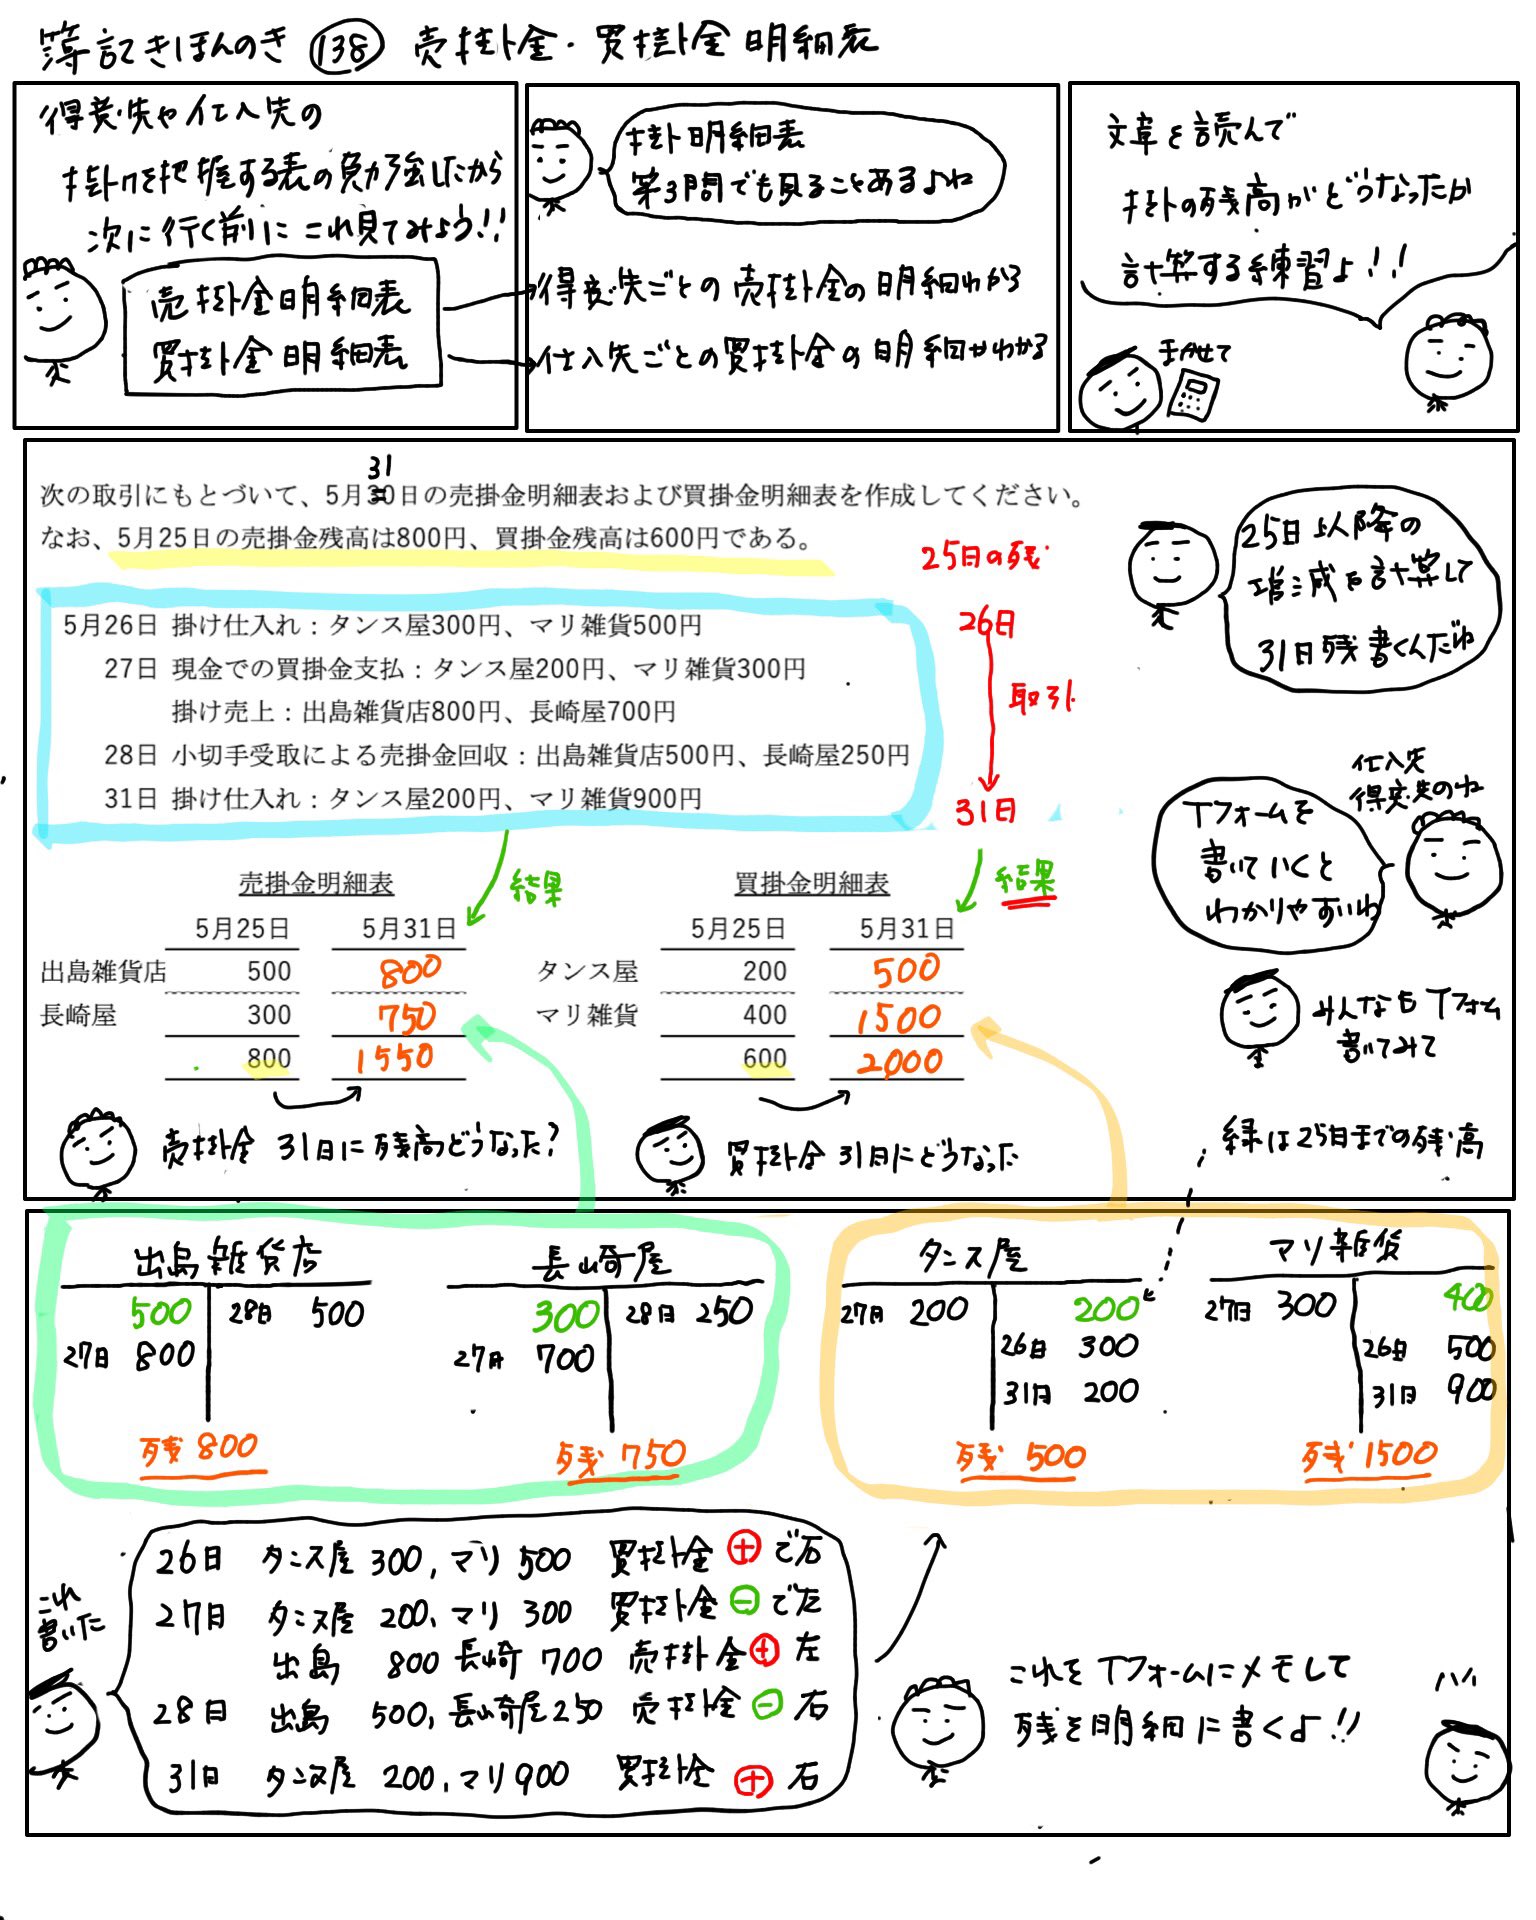 簿記きほんのき 138 売掛金・買掛金明細表
得意先や仕入先の
掛けを把握する表の勉強したから
次に行く前にこれ見てみよう!!
売掛金明細表
買掛金明細表
掛け明細表
第3問でも見ることあるよね
得意先ごとの売掛金の明細わかる
仕入先ごとの買掛金の明細がわかる
文章を読んで
掛けの残高がどうなったか
計算する練習よ!!
まかせて
31
次の取引にもとづいて、5月30日の売掛金明細表および買掛金明細表を作成してください。
なお、5月25日の売掛金残高は800円、買掛金残高は600円である。
5月26日 掛け仕入れ：タンス屋300円、マリ雑貨500円
27日 現金での買掛金支払：タンス屋200円、マリ雑貨300円
掛け売上：出島雑貨店800円、長崎屋700円
28日 小切手受取による売掛金回収：出島雑貨店500円、長崎屋250円
31日 掛け仕入れ：タンス屋200円、マリ雑貨900円
25日の残
26日
取引
31日
25日以降の
増減を計算して
31日残書くんだね
仕入先
得意先のね
Tフォームを
書いていくと
わかりやすいわ
みんなもTフォーム
書いてみて
結果
結果
売掛金明細表
5月25日 5月31日
出島雑貨店 500 800
長崎屋 300 750
800 1550
買掛金明細表
5月25日 5月31日
タンス屋 200 500
マリ雑貨 400 1500
600 2000
売掛金 31日に残高どうなった?
買掛金 31日にどうなった
緑は25日までの残高
出島雑貨店
500 28日 500
27日 800
残 800
長崎屋
300 28日 250
27日 700
残 750
タンス屋
27日 200 200
26日 300
31日 200
残 500
マリ雑貨
27日 300 400
26日 500
31日 900
残 1500
これ
書いた
26日 タンス屋 300, マリ 500 買掛金 ⊕で右
27日 タンス屋 200, マリ 300 買掛金 ⊖で左
出島 800 長崎 700 売掛金 ⊕ 左
28日 出島 500, 長崎屋 250 売掛金 ⊖ 右
31日 タンス屋 200, マリ 900 買掛金 ⊕ 右
これをTフォームにメモして
残を明細に書くよ!!
ハイ